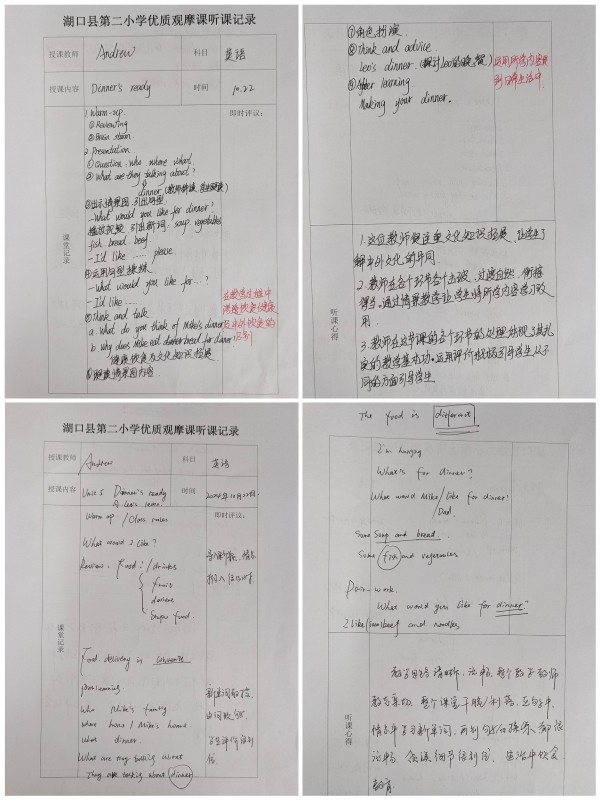 湖口县第二小学优质观摩课听课记录
授课教师 Andrew 科目 英语
授课内容 Dinner's ready 时间 10.22
即时评议:
课堂记录
1. Warm-up
① Reviewing
② Brain
2. Presentation
① Question: who where what
② What are they talking about?
dinner
③出示情景图,引出句型
-What would you like for dinner?
播放视频 引出新词: soup vegetables
fish bread beef
-I'd like ...... please.
④运用句型操练
-What would you like for...?
-I'd like ......
⑤Think and talk
a. What do you think of Mike's dinner
b. Why does Mike eat bread for dinner
健康饮食与文化知识拓展
情景图内容
在教学过程中
渗透饮食健康
及中外饮食的
区别
⑦角色扮演
⑧Think and advice
Leo's dinner.
⑨After learning
Making your dinner.
运用所学内容
到日常生活中.
听课心得
1.这位教师很注重文化知识拓展,让学生了
解中外文化的异同
2.教师在各个环节各个击破,过渡自然,衔接
得当,通过情景教学让学生将所学内容学习致
用.
3.教师在这节课的各个环节的处理体现了其扎
实的教学基本功,运用评价机制引导学生从不
同的方面引导学生
湖口县第二小学优质观摩课听课记录
授课教师 Andrew 科目 英语
授课内容 Unit 5 Dinner's ready
A Let's learn 时间 2024年10月22日
即时评议:
课堂记录
Warm up / Class rules
What would I like?
Review: Food: / drinks
fruit
dessert
Staple food
Food delivery is
Who Mike's family
where home / Mike's home.
what dinner.
What are they talking about
They are talking about dinner
The food is different
I'm hungry
What's for dinner?
What would Mike / like for dinner?
/ Dad.
Some soup and bread.
Some fish and vegetables
Pair-work.
What would you like for dinner?
I like some beef and noodles
听课心得
教学思路清晰、流畅,整个教学教师
教态亲切,整个课堂干脆利落,在句子中,
情景中学习新单词,再到句子的操练都很
流畅,
教育